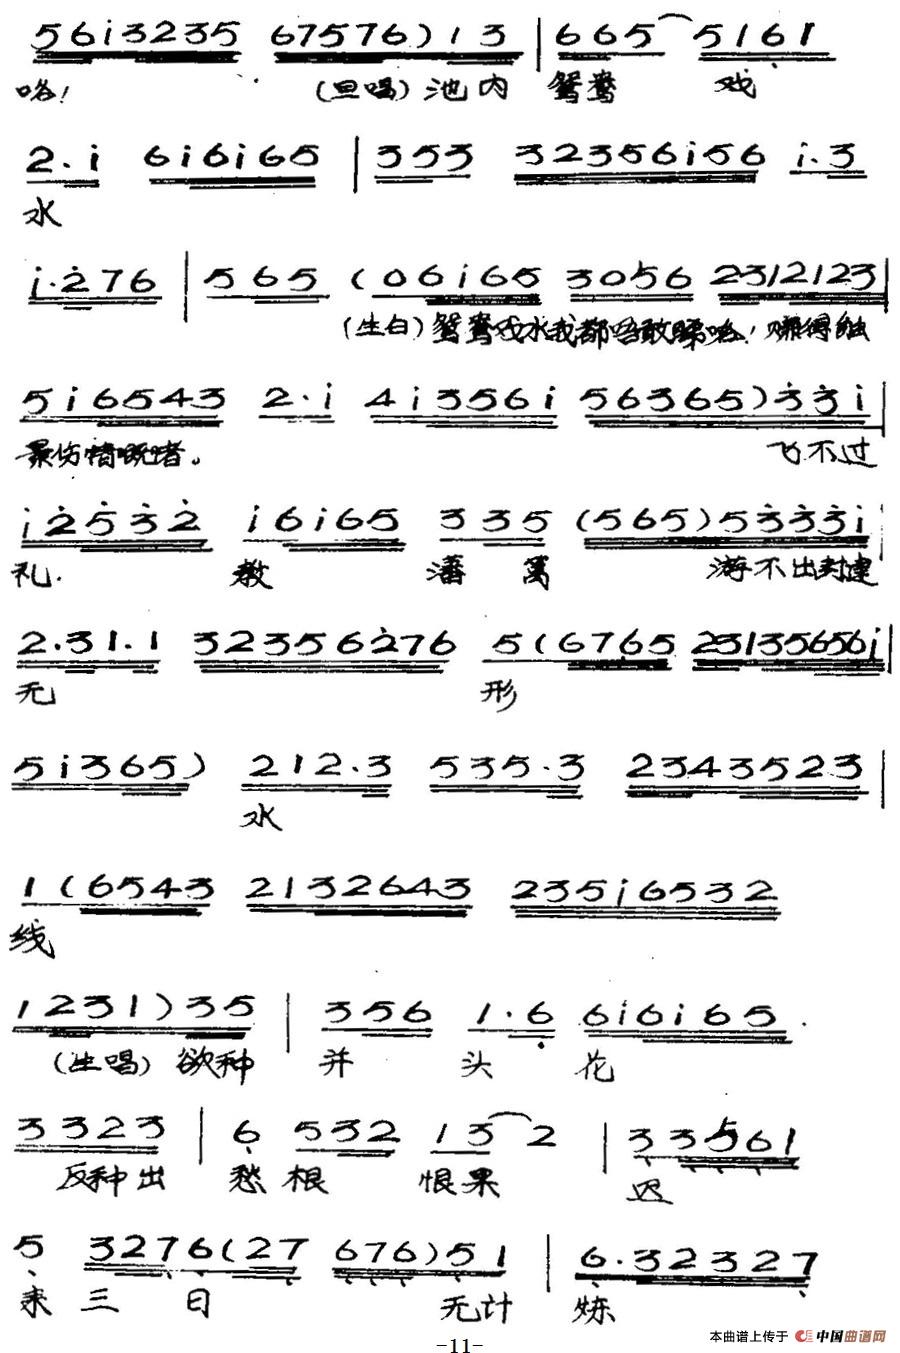 561̇3235 67576) 1 3 | 665 5161
咯! (旦唱) 池内 鸳鸯 戏
2·1̇ 61̇61̇65 | 353 323561̇56 1̇·3
水
1̇·2̇76 | 565 (061̇65 3056 2312123 |
(生白) 鸳鸯戏水我都唔敢睇咯! 睇得
51̇6543 2·1̇ 41̇3561̇ 56365) 3̇3̇1̇ |
最伤情嘅啫。 飞不过
1̇2̇5̇3̇2̇ 1̇61̇65 335 (565) 53̇3̇3̇1̇ |
礼 教 藩 篱 游不出封建
2·31·1 323562̇76 5(6765 231356561̇ |
无 形
51̇365) 212·3 535·3 2343523 |
水
1(6543 2132643 2351̇6532
线
1231) 35 | 356 1·6̣ 61̇61̇65
(生唱) 欲种 并 头 花
3323 | 6̣ 532 13 2 | 3̣3̣5̣6̣1
反种出 愁 根 恨 果 迟
5̣ 327̣6̣(27̣ 6̣7̣6̣) 5̣1 | 6̣·32327̣
来 三 日 无计 炼
-11-
本曲谱上传于 中国曲谱网